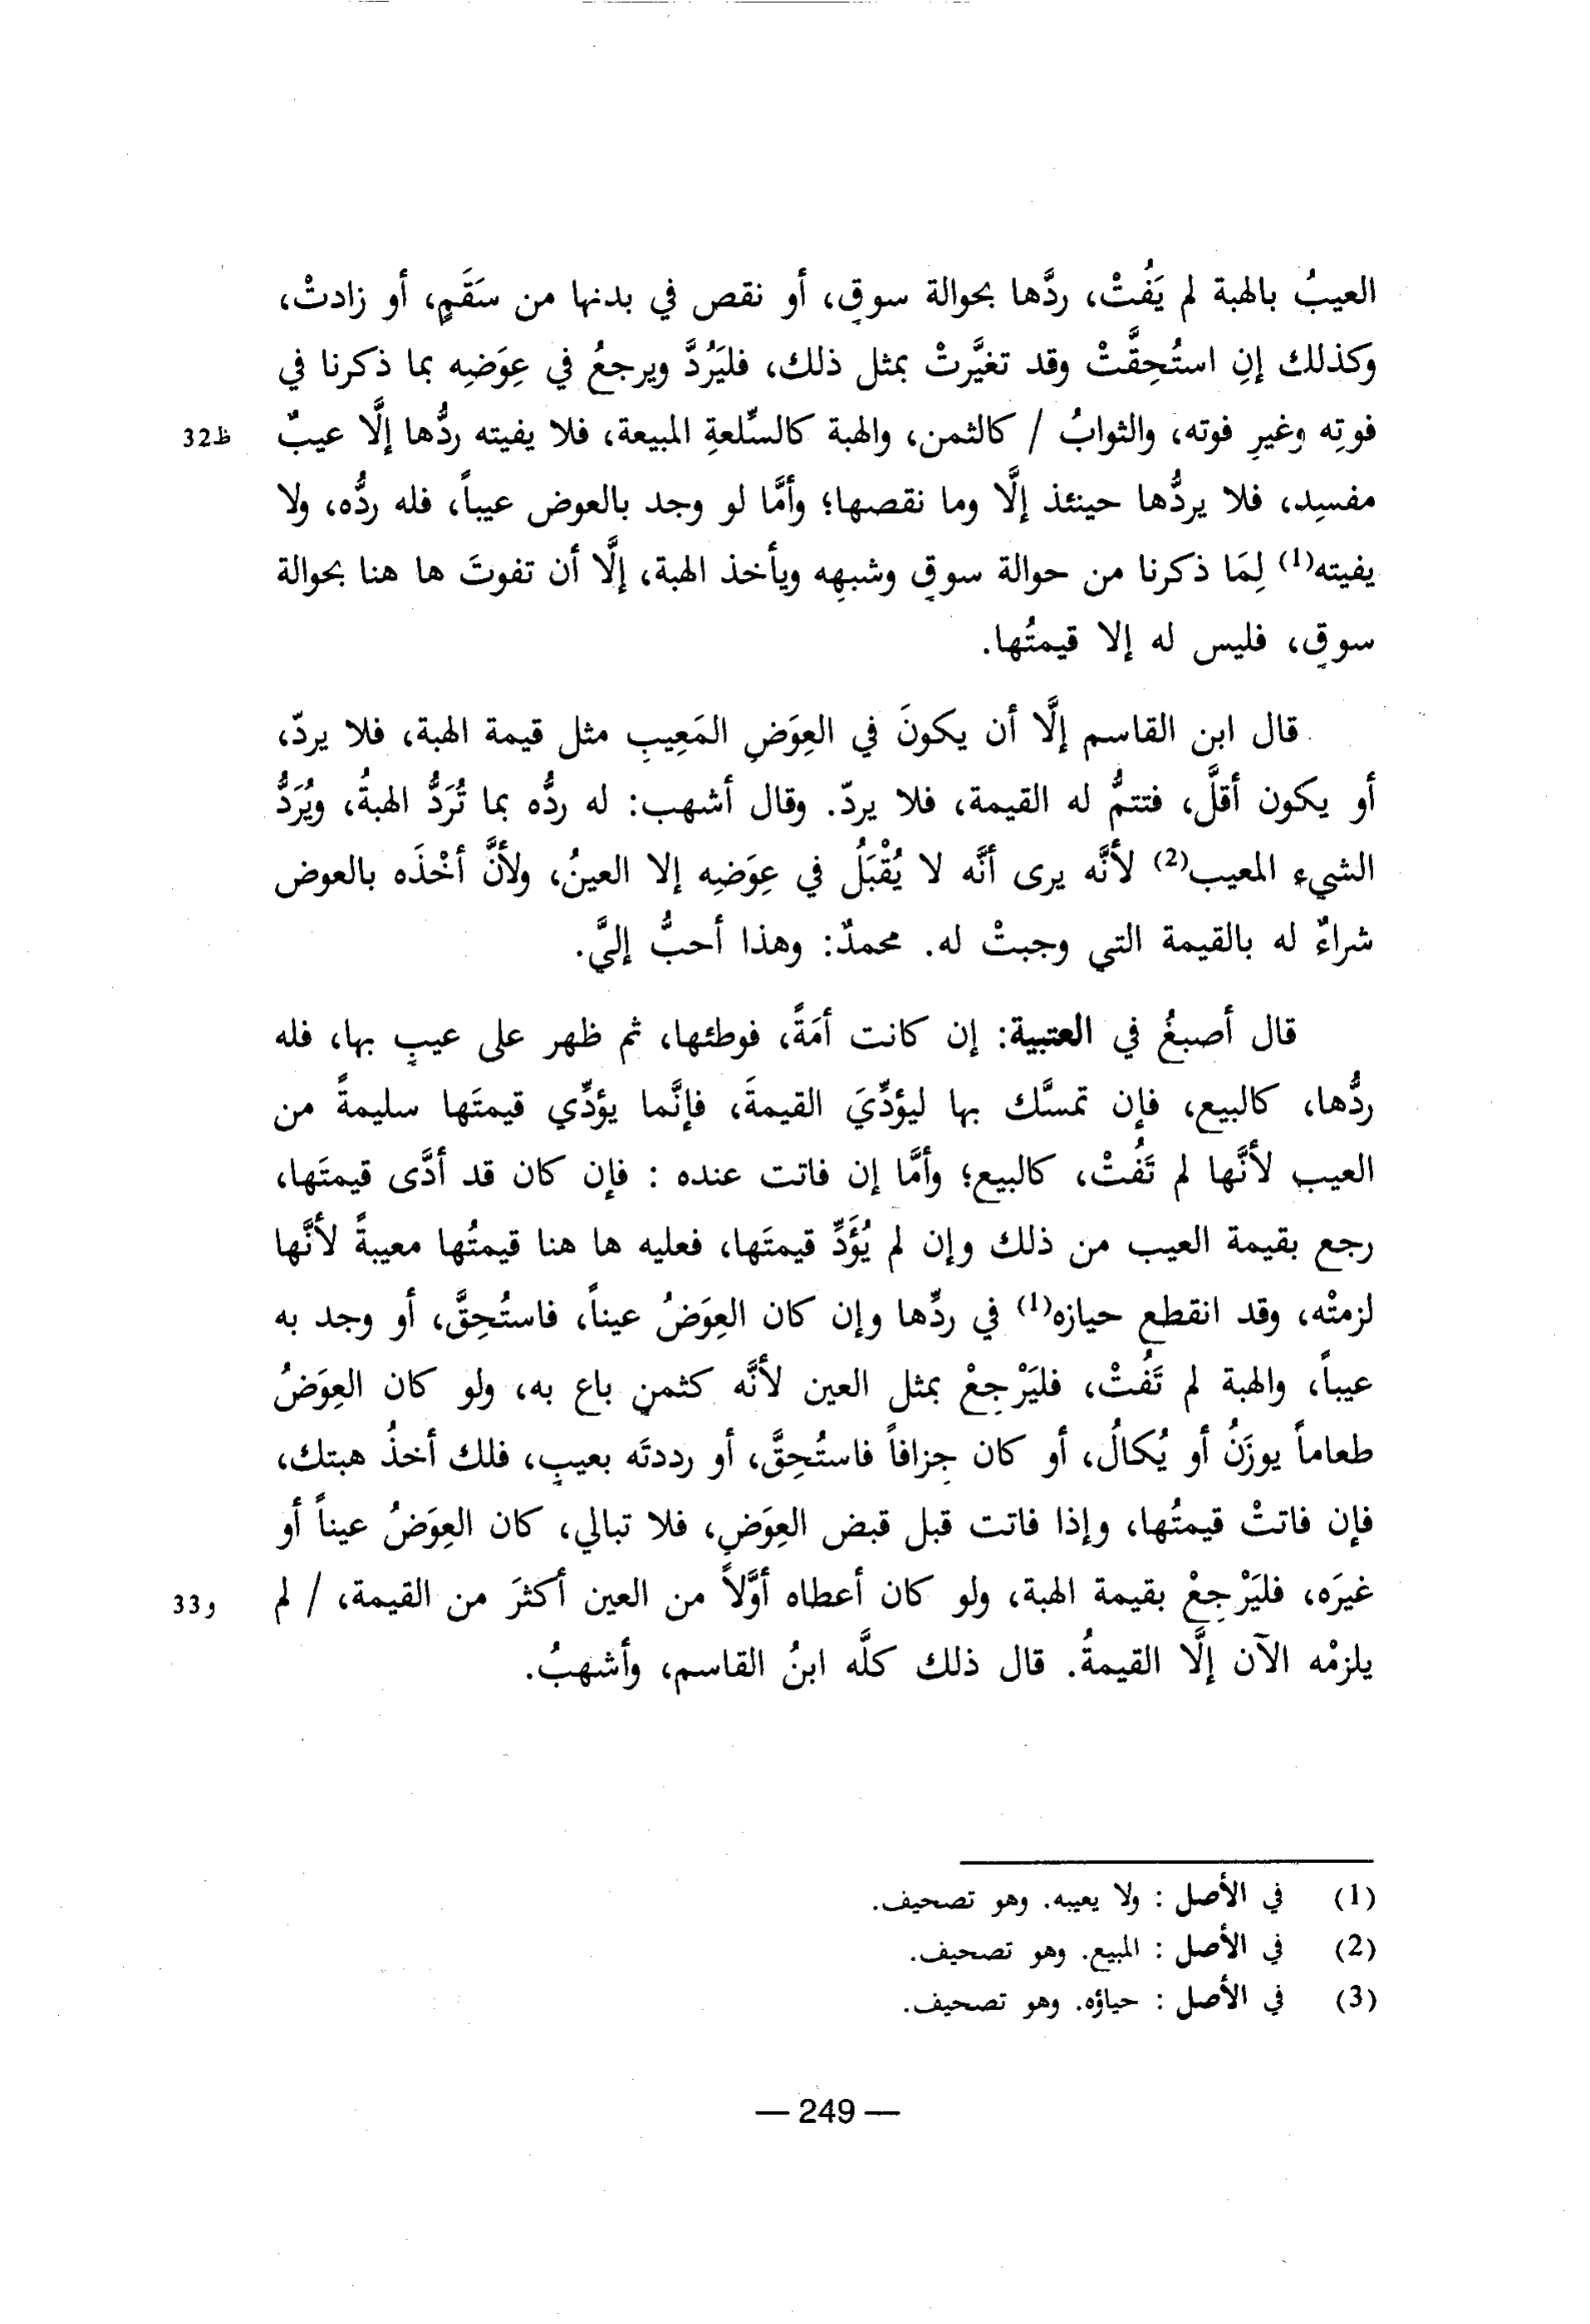 العيبُ بالهبة لم يَفُتْ، ردَّها بحوالة سوقٍ، أو نقص في بدنها من سَقَمٍ، أو زادتْ،
وكذلك إنِ استُحِقَّتْ وقد تغيَّرتْ بمثل ذلك، فليَرُدَّ ويرجعُ في عِوَضِه بما ذكرنا في
فوتِه وغيرِ فوته، والثوابُ / كالثمن، والهبة كالسِّلعةِ المبيعة، فلا يفيته ردُّها إلَّا عيبٌ ظ32
مفسِد، فلا يردُّها حينئذ إلَّا وما نقصها؛ وأمَّا لو وجد بالعوض عيباً، فله ردُّه، ولا
يفيته(1) لِمَا ذكرنا من حوالة سوقٍ وشبهِه ويأخذ الهبة، إلَّا أن تفوتَ ها هنا بحوالة
سوقٍ، فليس له إلا قيمتُها.
قال ابن القاسم إلَّا أن يكونَ في العِوَضِ المَعِيبِ مثل قيمة الهبة، فلا يردّ،
أو يكون أقلَّ، فتتمُّ له القيمة، فلا يردّ. وقال أشهب: له ردُّه بما تُرَدُّ الهبةُ، ويُرَدُّ
الشيء المعيب(2) لأنَّه يرى أنَّه لا يُقْبَلُ في عِوَضِه إلا العينُ، ولأنَّ أخْذَه بالعوض
شراءٌ له بالقيمة التي وجبتْ له. محمدٌ: وهذا أحبُّ إليَّ.
قال أصبغُ في العتبية: إن كانت أمَةً، فوطئها، ثم ظهر على عيبٍ بها، فله
ردُّها، كالبيع، فإن تمسَّك بها ليؤدِّيَ القيمةَ، فإنَّما يؤدِّي قيمتَها سليمةً من
العيب لأنَّها لم تَفُتْ، كالبيع؛ وأمَّا إن فاتت عنده : فإن كان قد أدَّى قيمتَها،
رجع بقيمة العيب من ذلك وإن لم يُؤَدِّ قيمتَها، فعليه ها هنا قيمتُها معيبةً لأنَّها
لزمتْه، وقد انقطع حيازه(1) في ردِّها وإن كان العِوَضُ عيناً، فاستُحِقَّ، أو وجد به
عيباً، والهبة لم تَفُتْ، فليَرْجِعْ بمثل العين لأنَّه كثمنٍ باع به، ولو كان العِوَضُ
طعاماً يوزَنُ أو يُكالُ، أو كان جِزافاً فاستُحِقَّ، أو رددتَه بعيبٍ، فلك أخذُ هبتك،
فإن فاتتْ قيمتُها، وإذا فاتت قبل قبض العِوَضِ، فلا تبالي، كان العِوَضُ عيناً أو
غيرَه، فليَرْجِعْ بقيمة الهبة، ولو كان أعطاه أوَّلاً من العين أكثرَ من القيمة، / لم و33
يلزمْه الآن إلَّا القيمةُ. قال ذلك كلَّه ابنُ القاسم، وأشهبُ.
(1) في الأصل : ولا يعيبه. وهو تصحيف.
(2) في الأصل : المبيع. وهو تصحيف.
(3) في الأصل : حياؤه. وهو تصحيف.
— 249 —